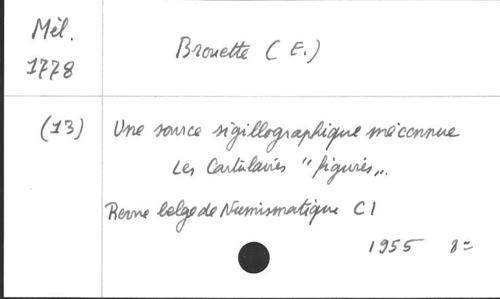 Mél.
1778
Brouette (E.)
(13) Une source sigillographique méconnue
Les Cartulaires "figurés".
Revue belge de Numismatique CI
1955 8=